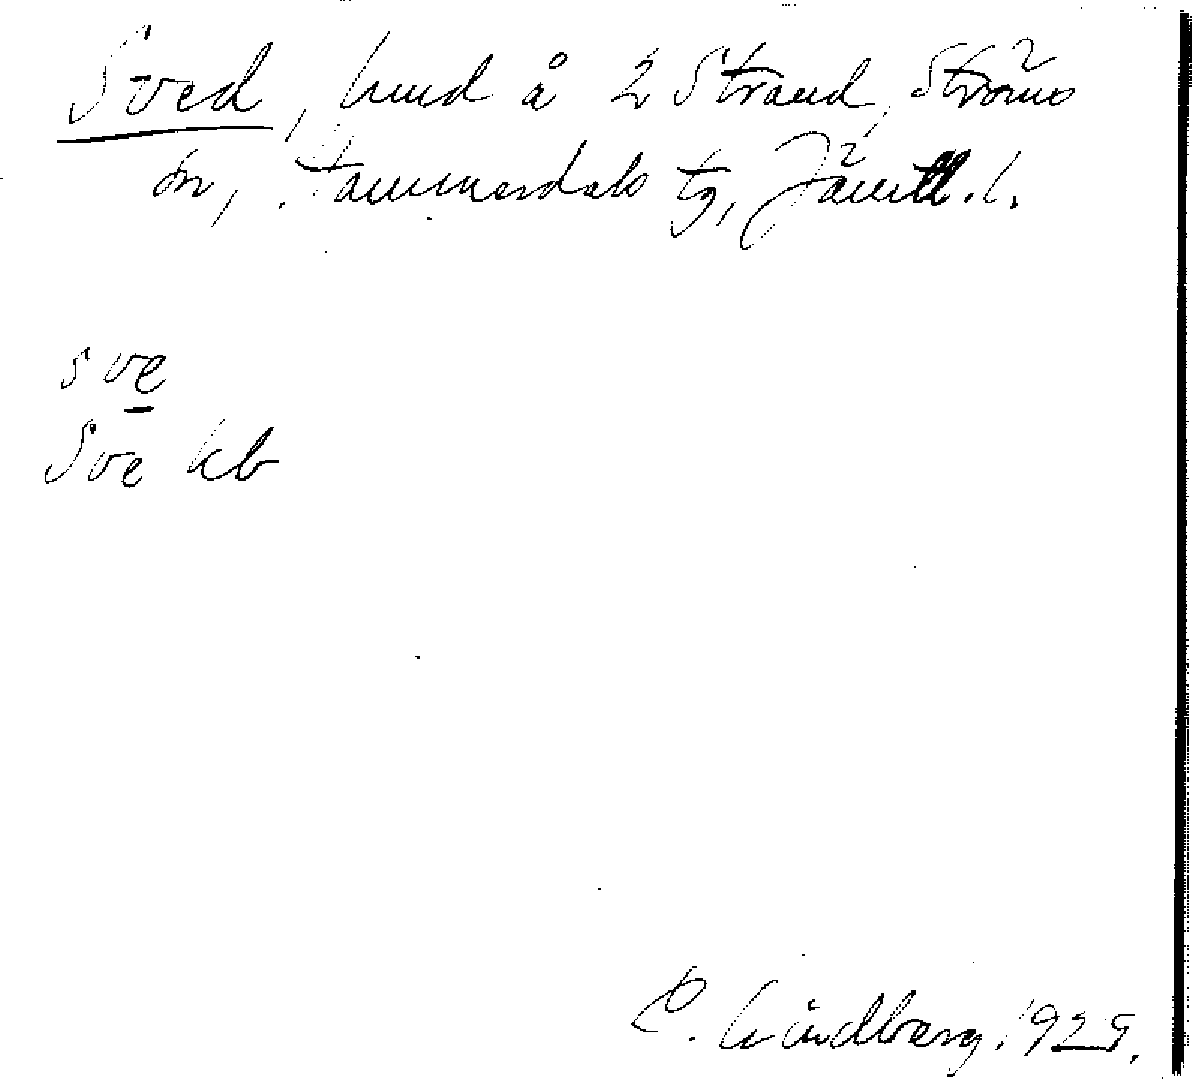 Sved, lund å 2 Strand, Ströms
sn, Hammerdals tg, Jämtl. l.
sve
Sve kb
C. Lindberg. 1925.